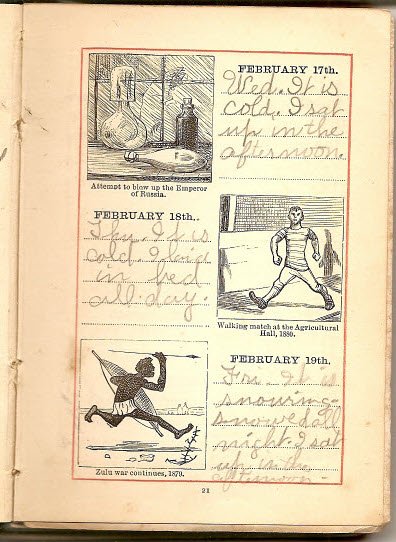 FEBRUARY 17th.
Wed. It is
cold. I sat
up in the
afternoon.
Attempt to blow up the Emperor
of Russia.
FEBRUARY 18th.
Thu. It is
cold. I laid
in bed
all day.
Walking match at the Agricultural
Hall, 1880.
FEBRUARY 19th.
Fri. It is
snowing-
snowed all
night. I sat
up in the
afternoon.
Zulu war continues, 1879.
21